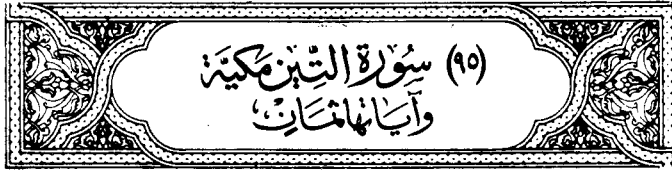 (٩٥) سُورَة التِّين مَكيَّة
وَآيَاتهَا ثَمَانِ